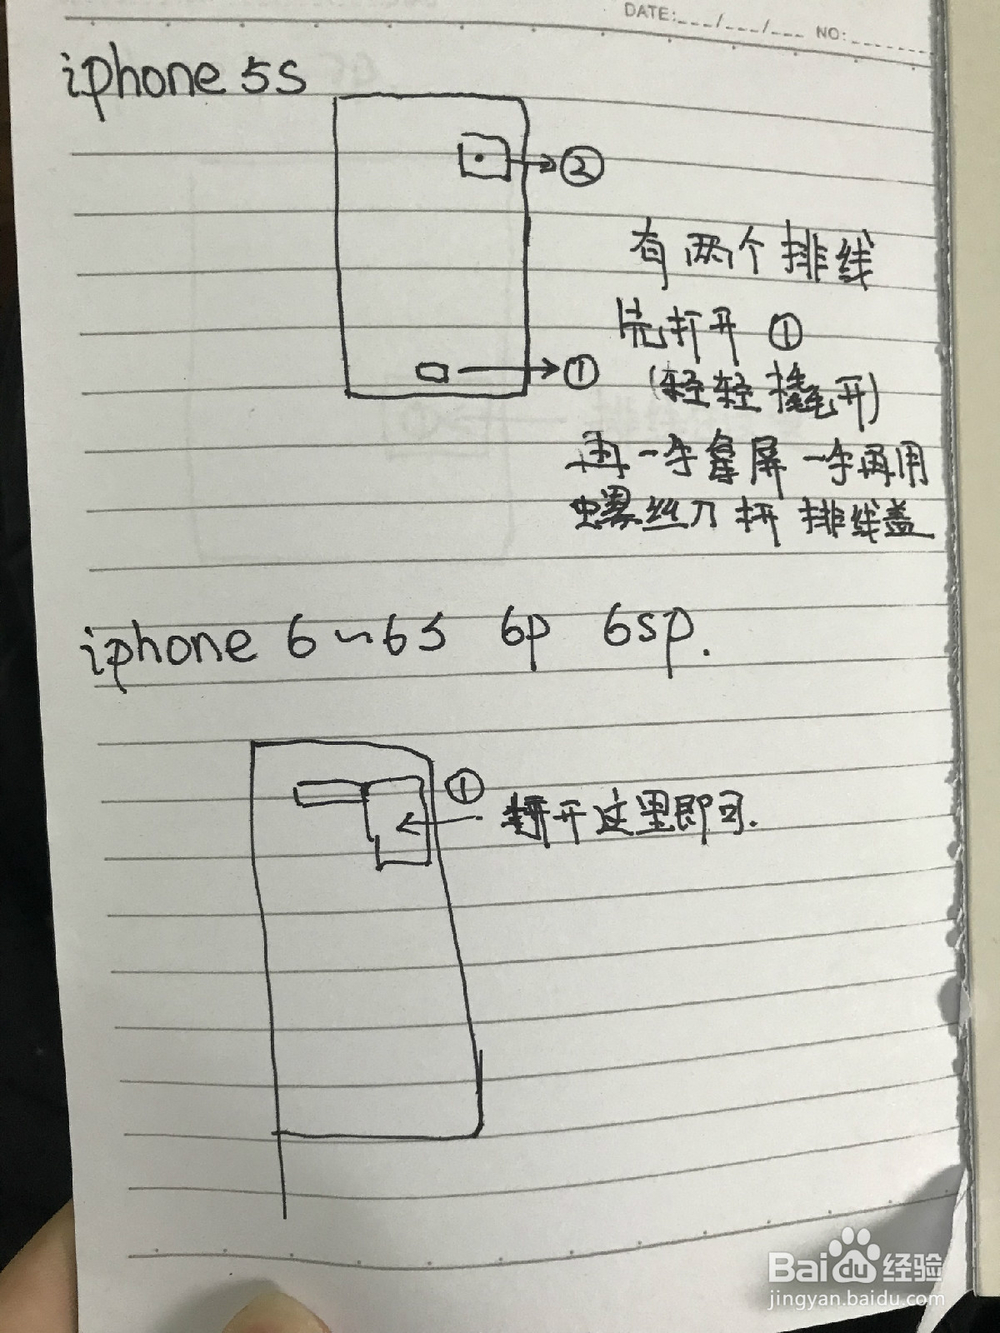 DATE:___/___/___ NO:______
iphone 5s
②
有两个排线
先打开 ①
(轻轻撬开)
①
再一手拿屏 一手再用
螺丝刀 打开 排线盖
iphone 6~6s 6p 6sp.
①
打开这里即可.
Baidu 经验
jingyan.baidu.com